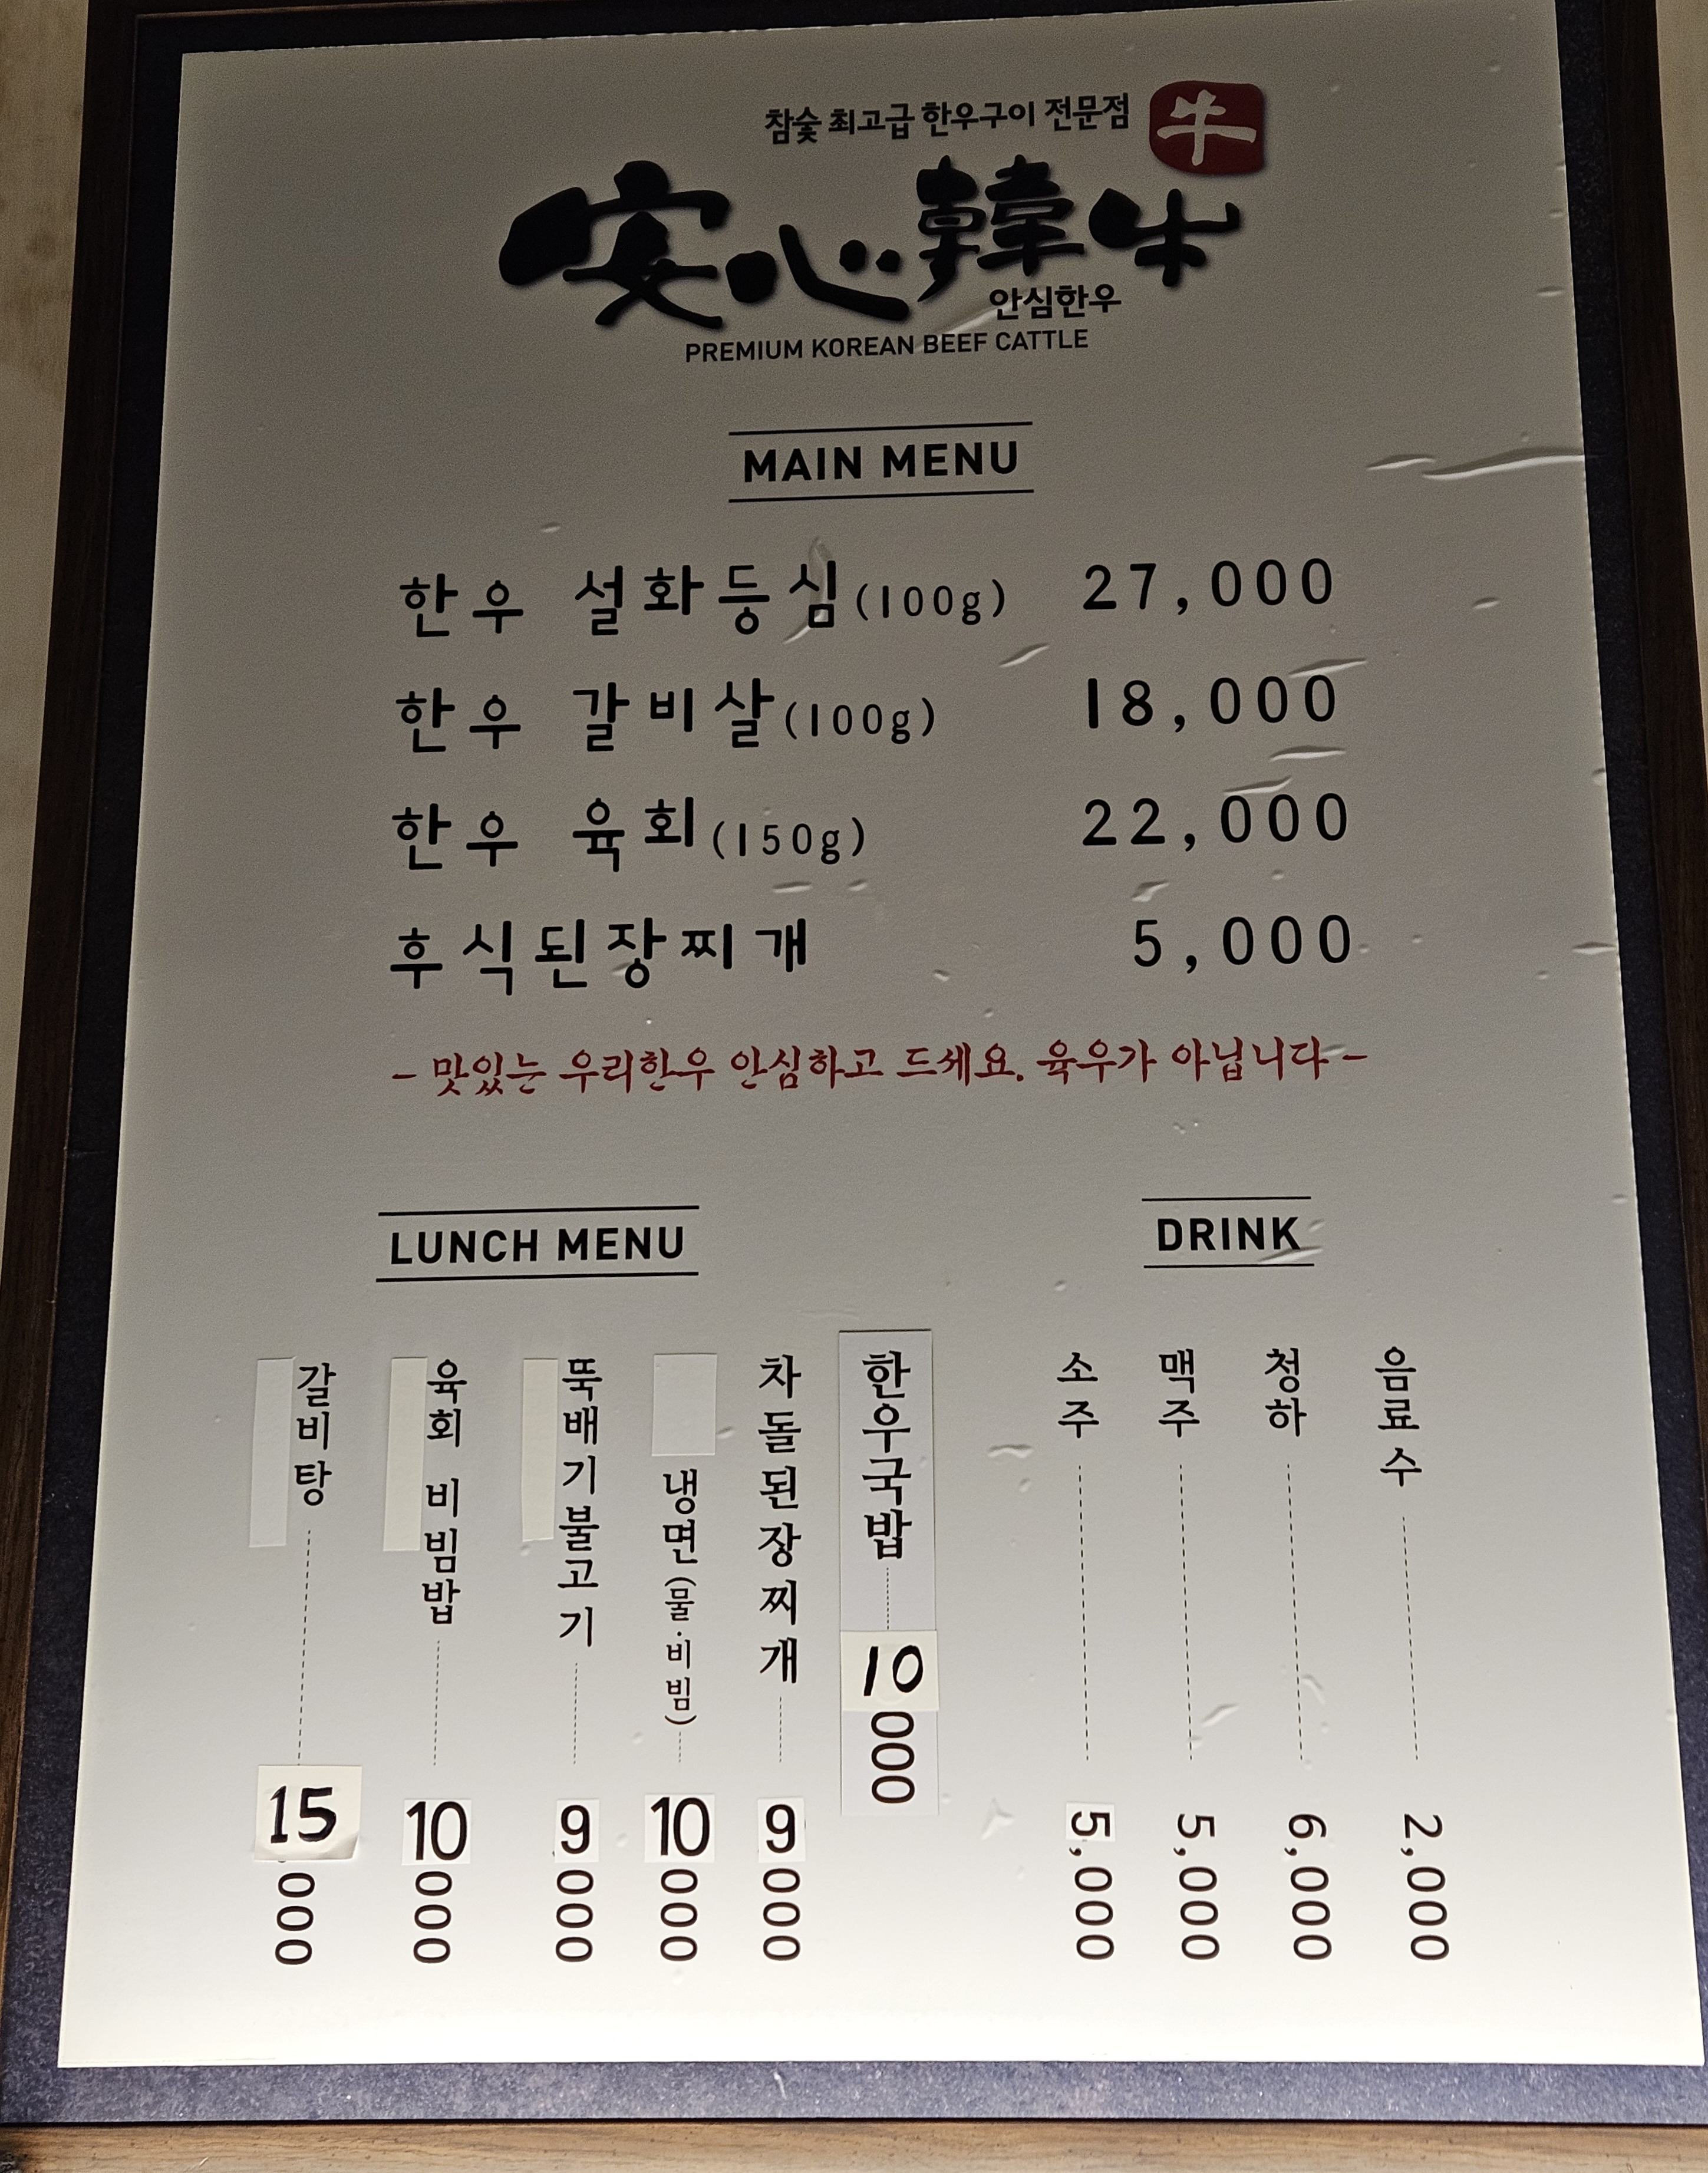 참숯 최고급 한우구이 전문점 牛
安心韓牛
안심한우
PREMIUM KOREAN BEEF CATTLE
MAIN MENU
한우 설화등심(100g) 27,000
한우 갈비살(100g) 18,000
한우 육회(150g) 22,000
후식된장찌개 5,000
- 맛있는 우리한우 안심하고 드세요. 육우가 아닙니다 -
LUNCH MENU
갈비탕 15000
육회 비빔밥 10000
뚝배기불고기 9000
냉면(물·비빔) 10000
차돌된장찌개 9000
한우국밥 10000
DRINK
소주 5,000
맥주 5,000
청하 6,000
음료수 2,000